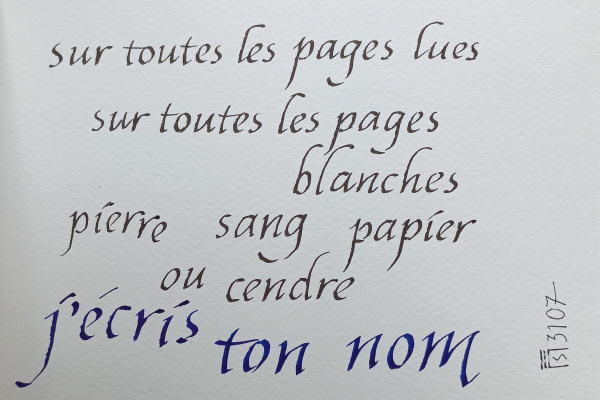 sur toutes les pages lues
sur toutes les pages
blanches
pierre sang papier
ou cendre
j'écris ton nom
3107